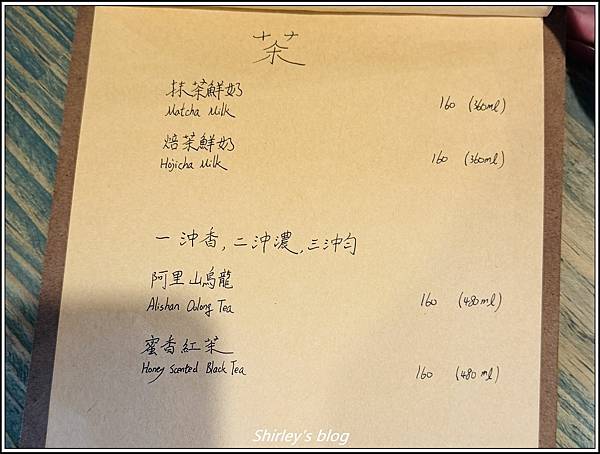 茶
抹茶鮮奶
Matcha Milk 160 (360ml)
焙茶鮮奶
Hojicha Milk 160 (360ml)
一沖香,二沖濃,三沖勻
阿里山烏龍
Alishan Oolong Tea 160 (480ml)
蜜香紅茶
Honey Scented Black Tea 160 (480ml)
Shirley's blog